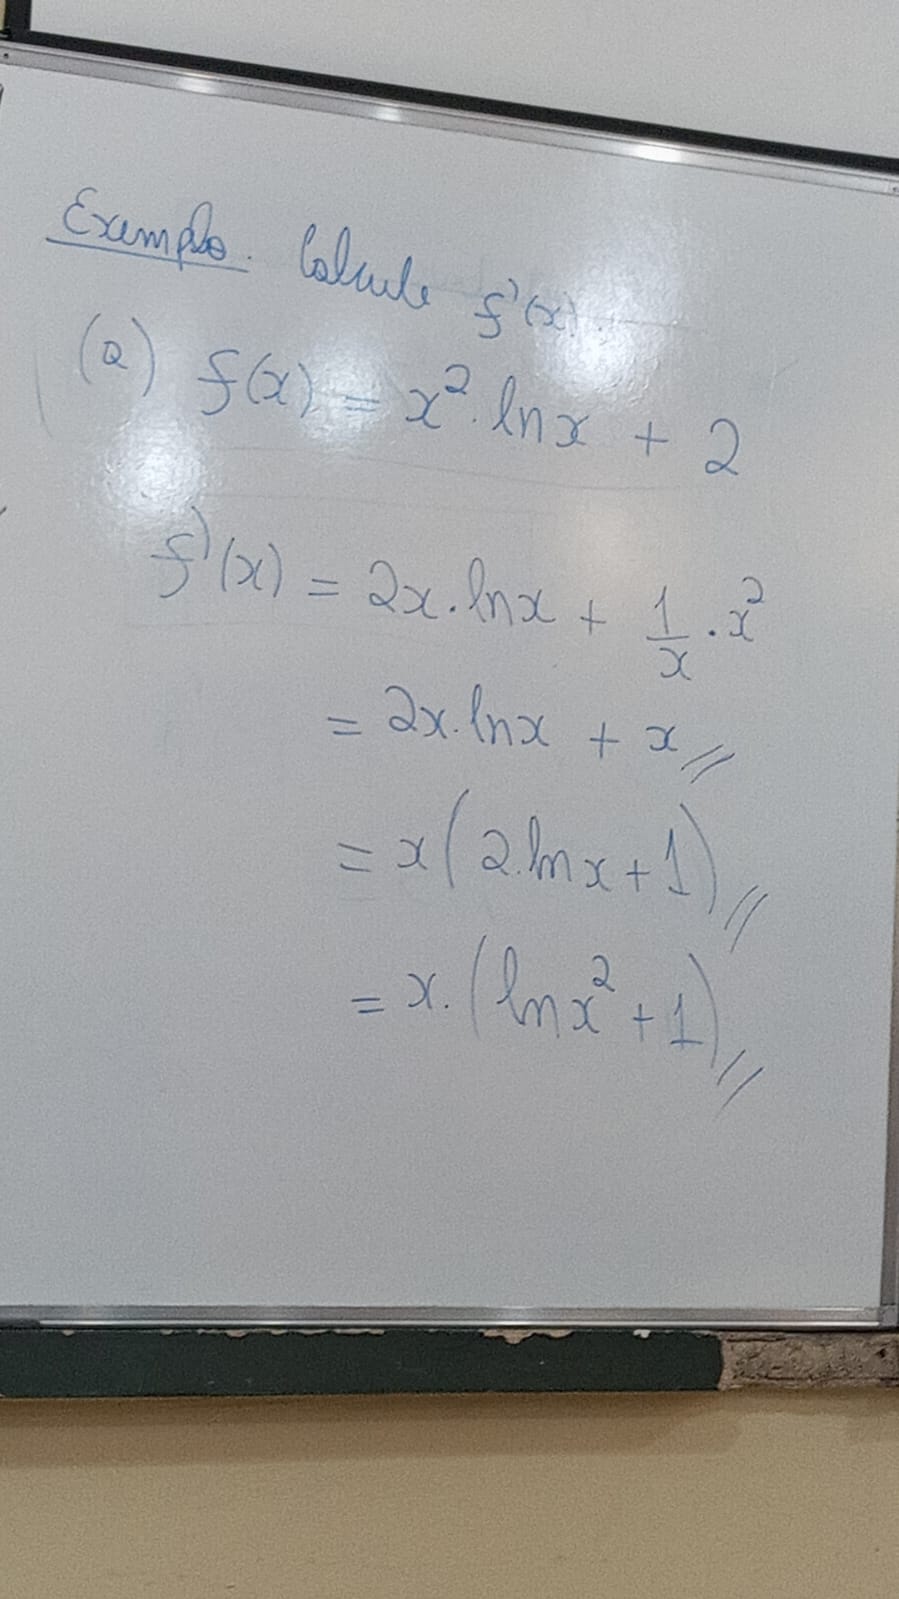 Exemplo. Calcule f'(x).
(a) f(x) = x². ln x + 2
f'(x) = 2x. ln x + 1/x . x²
= 2x. ln x + x //
= x (2. ln x + 1) //
= x. (ln x² + 1) //